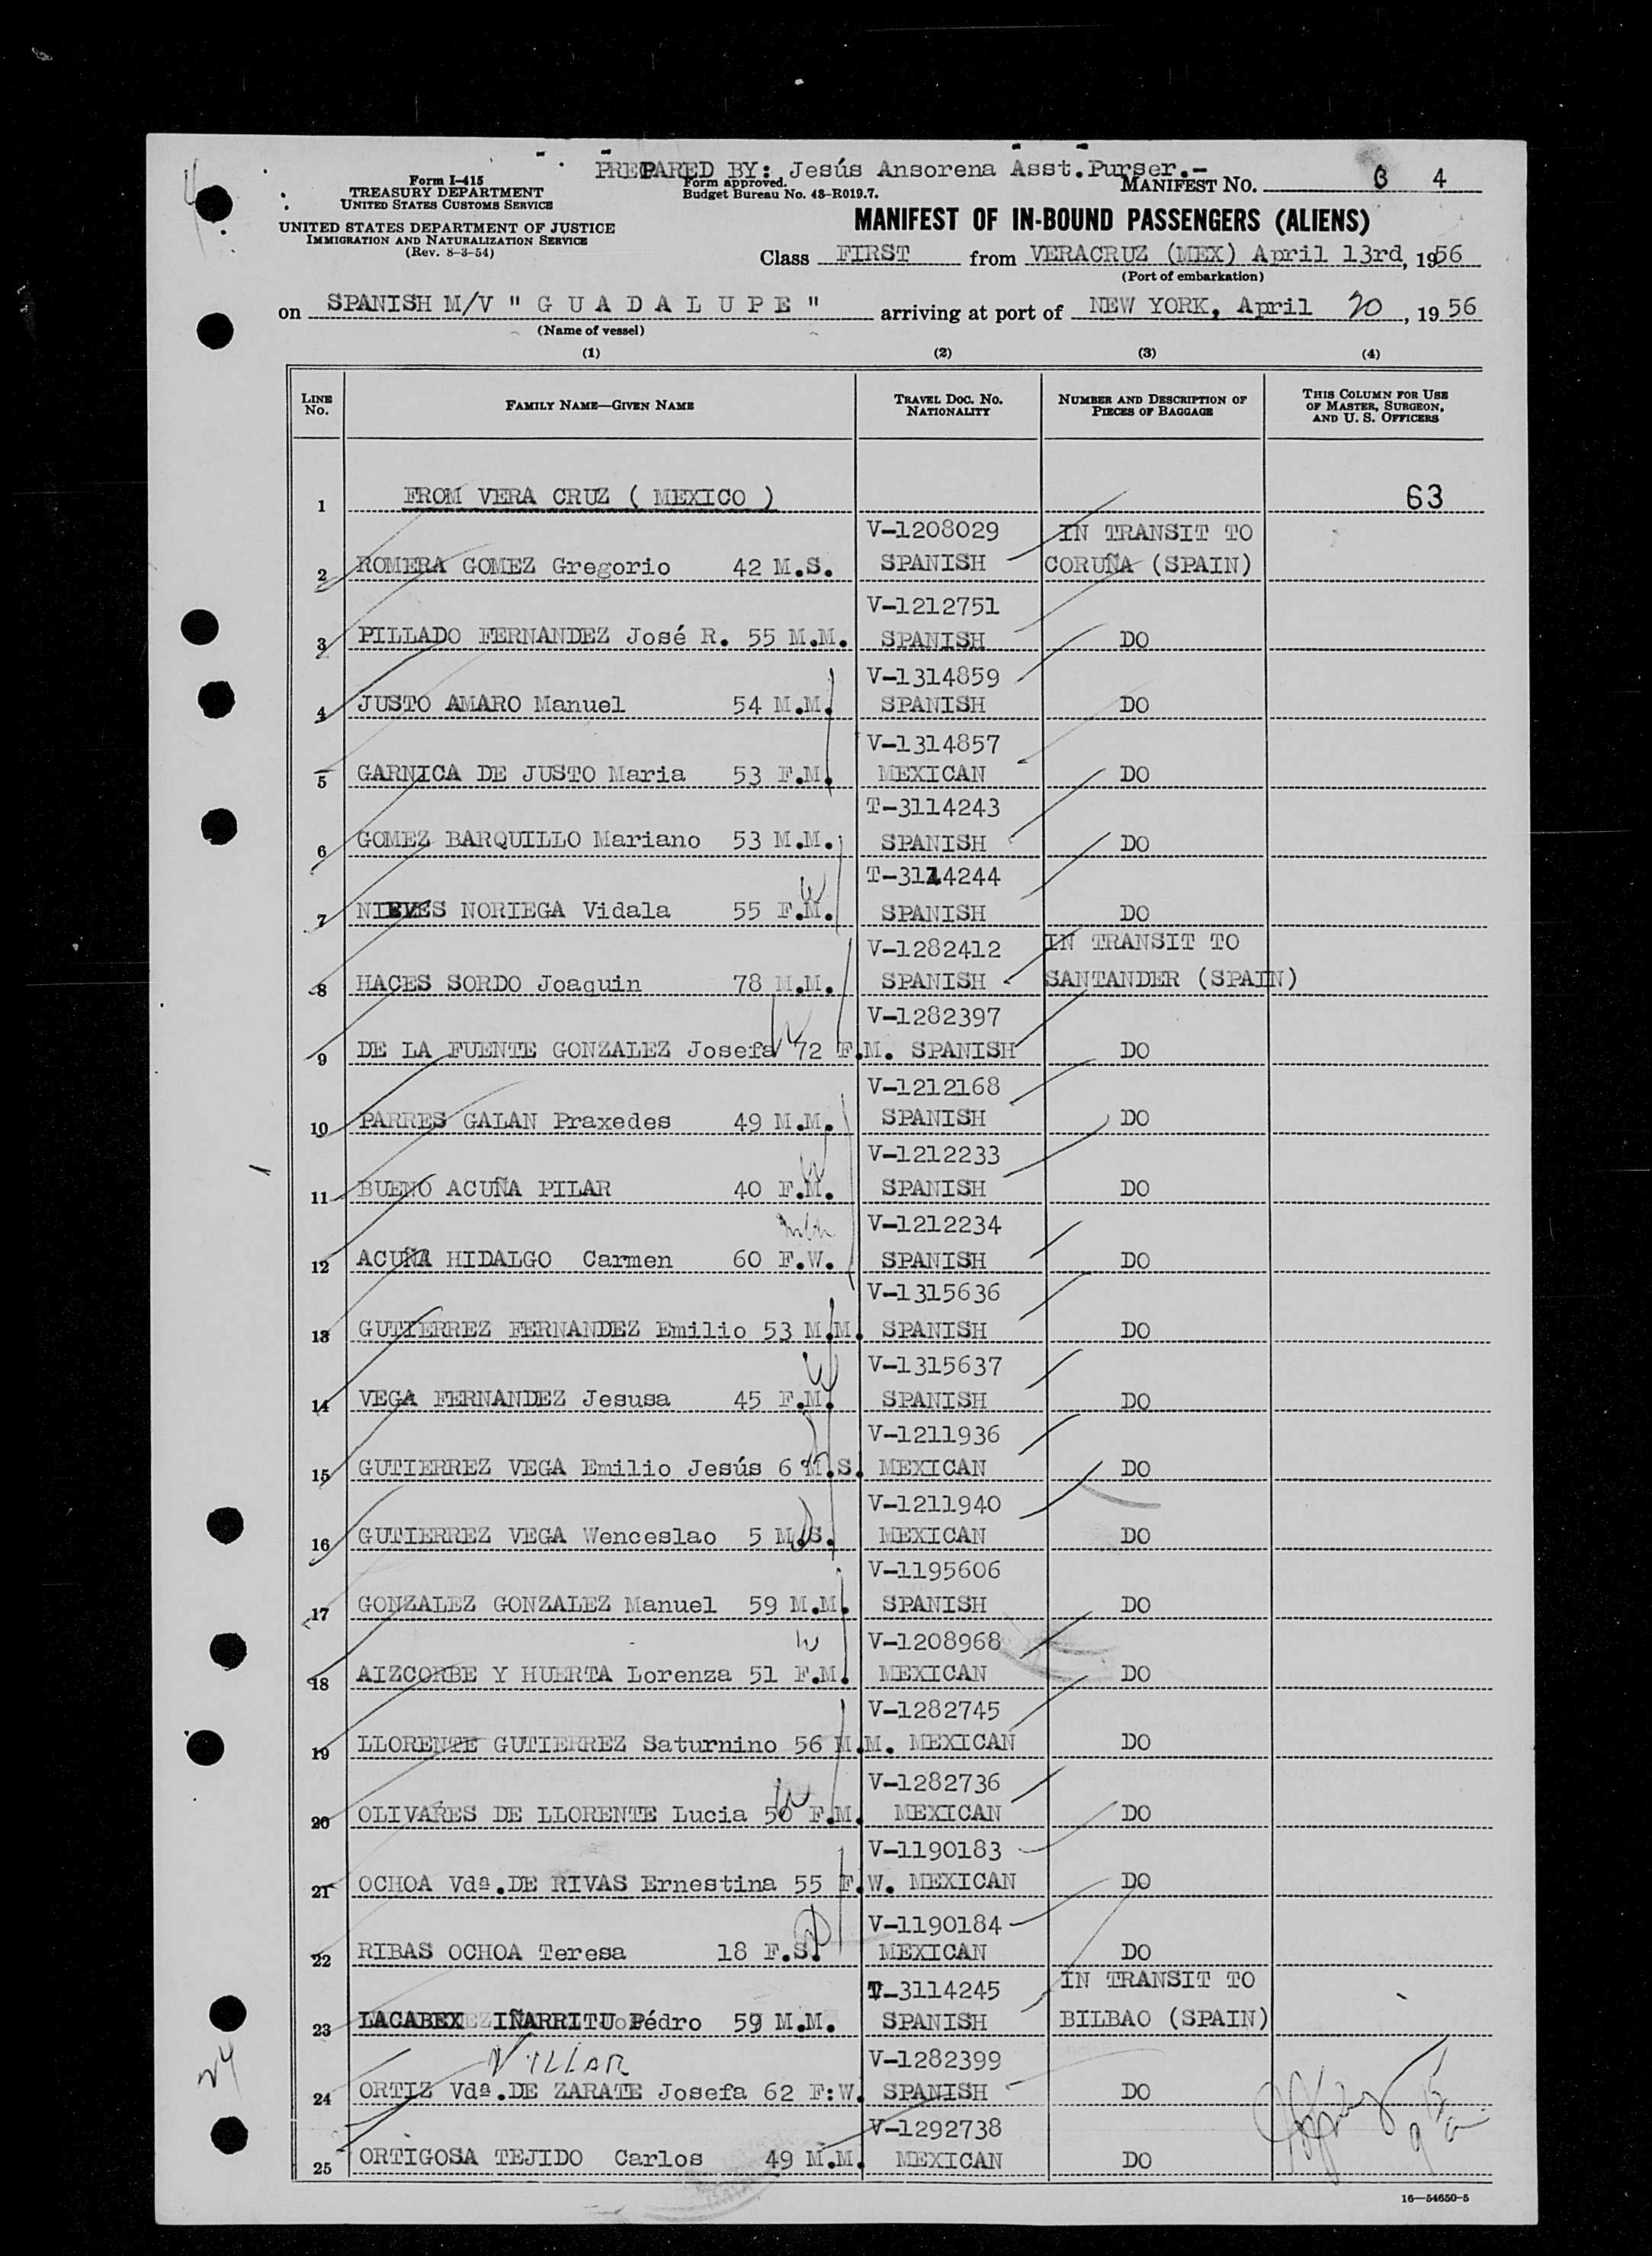 PREPARED BY: Jesús Ansorena Asst.Purser.-
Form I-415
TREASURY DEPARTMENT
UNITED STATES CUSTOMS SERVICE
UNITED STATES DEPARTMENT OF JUSTICE
IMMIGRATION AND NATURALIZATION SERVICE
(Rev. 8-3-54)
Form approved.
Budget Bureau No. 43-R019.7.
MANIFEST NO. 4
MANIFEST OF IN-BOUND PASSENGERS (ALIENS)
Class FIRST from VERACRUZ (MEX) April 13rd, 1956
(Port of embarkation)
on SPANISH M/V " G U A D A L U P E " arriving at port of NEW YORK, April 20, 1956
(Name of vessel)
(1) (2) (3) (4)
LINE NO. FAMILY NAME—GIVEN NAME TRAVEL DOC. NO. NATIONALITY NUMBER AND DESCRIPTION OF PIECES OF BAGGAGE THIS COLUMN FOR USE OF MASTER, SURGEON, AND U. S. OFFICERS
1 FROM VERA CRUZ ( MEXICO ) 63
V-1208029 IN TRANSIT TO
2 ROMERA GOMEZ Gregorio 42 M.S. SPANISH CORUÑA (SPAIN)
V-1212751
3 PILLADO FERNANDEZ José R. 55 M.M. SPANISH DO
V-1314859
4 JUSTO AMARO Manuel 54 M.M. SPANISH DO
V-1314857
5 GARNICA DE JUSTO Maria 53 F.M. MEXICAN DO
T-3114243
6 GOMEZ BARQUILLO Mariano 53 M.M. SPANISH DO
T-3114244
7 NIEVES NORIEGA Vidala 55 F.M. SPANISH DO
V-1282412 IN TRANSIT TO
8 HACES SORDO Joaquin 78 M.M. SPANISH SANTANDER (SPAIN)
V-1282397
9 DE LA FUENTE GONZALEZ Josefa 72 F.M. SPANISH DO
V-1212168
10 PARRES GALAN Praxedes 49 M.M. SPANISH DO
V-1212233
11 BUENO ACUÑA PILAR 40 F.M. SPANISH DO
V-1212234
12 ACUÑA HIDALGO Carmen 60 F.W. SPANISH DO
V-1315636
13 GUTIERREZ FERNANDEZ Emilio 53 M.M. SPANISH DO
V-1315637
14 VEGA FERNANDEZ Jesusa 45 F.M. SPANISH DO
V-1211936
15 GUTIERREZ VEGA Emilio Jesús 6 M.S. MEXICAN DO
V-1211940
16 GUTIERREZ VEGA Wenceslao 5 M.S. MEXICAN DO
V-1195606
17 GONZALEZ GONZALEZ Manuel 59 M.M. SPANISH DO
V-1208968
18 AIZCORBE Y HUERTA Lorenza 51 F.M. MEXICAN DO
V-1282745
19 LLORENTE GUTIERREZ Saturnino 56 M.M. MEXICAN DO
V-1282736
20 OLIVARES DE LLORENTE Lucia 50 F.M. MEXICAN DO
V-1190183
21 OCHOA Vdª.DE RIVAS Ernestina 55 F.W. MEXICAN DO
V-1190184
22 RIBAS OCHOA Teresa 18 F.S. MEXICAN DO
T-3114245 IN TRANSIT TO
23 LACABEX IÑARRITU Pédro 59 M.M. SPANISH BILBAO (SPAIN)
VILLAR V-1282399
24 ORTIZ Vdª.DE ZARATE Josefa 62 F:W. SPANISH DO
V-1292738
25 ORTIGOSA TEJIDO Carlos 49 M.M. MEXICAN DO
24
16—54650-5